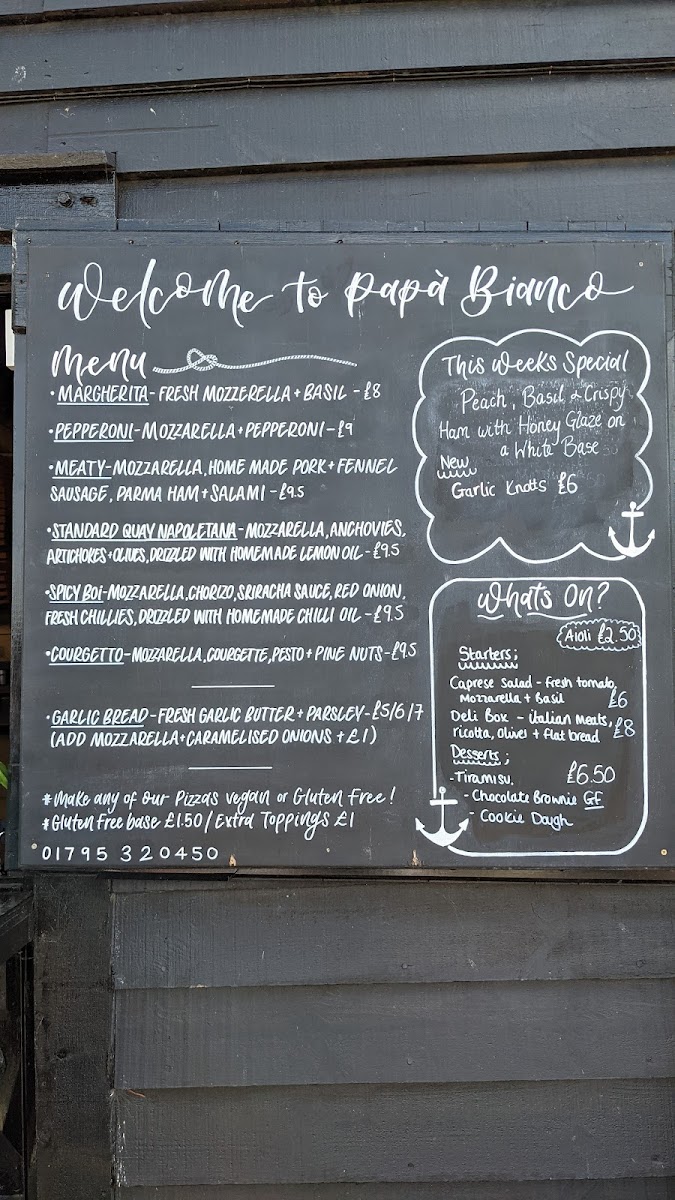 Welcome to Papà Bianco
menu
• MARGHERITA - FRESH MOZZERELLA + BASIL - £8
• PEPPERONI - MOZZARELLA + PEPPERONI - £9
• MEATY - MOZZARELLA, HOME MADE PORK + FENNEL
SAUSAGE, PARMA HAM + SALAMI - £9.5
• STANDARD QUAY NAPOLETANA - MOZZARELLA, ANCHOVIES,
ARTICHOKES + OLIVES, DRIZZLED WITH HOMEMADE LEMON OIL - £9.5
• SPICY BOI - MOZZARELLA, CHORIZO, SRIRACHA SAUCE, RED ONION,
FRESH CHILLIES, DRIZZLED WITH HOMEMADE CHILLI OIL - £9.5
• COURGETTO - MOZZARELLA, COURGETTE, PESTO + PINE NUTS - £9.5
• GARLIC BREAD - FRESH GARLIC BUTTER + PARSLEY - £5/6/7
(ADD MOZZARELLA + CARAMELISED ONIONS + £1)
* Make any of our Pizzas vegan or Gluten Free!
* Gluten Free base £1.50 / Extra Toppings £1
01795 320450
This Weeks Special
Peach, Basil & Crispy
Ham with Honey Glaze on
a White Base
New
Garlic Knotts £6
Whats On?
Aioli £2.50
Starters;
Caprese Salad - fresh tomato,
Mozzarella + Basil £6
Deli Box - italian Meats,
ricotta, olives + flat bread £8
Desserts;
- Tiramisu. £6.50
- Chocolate Brownie GF
- Cookie Dough